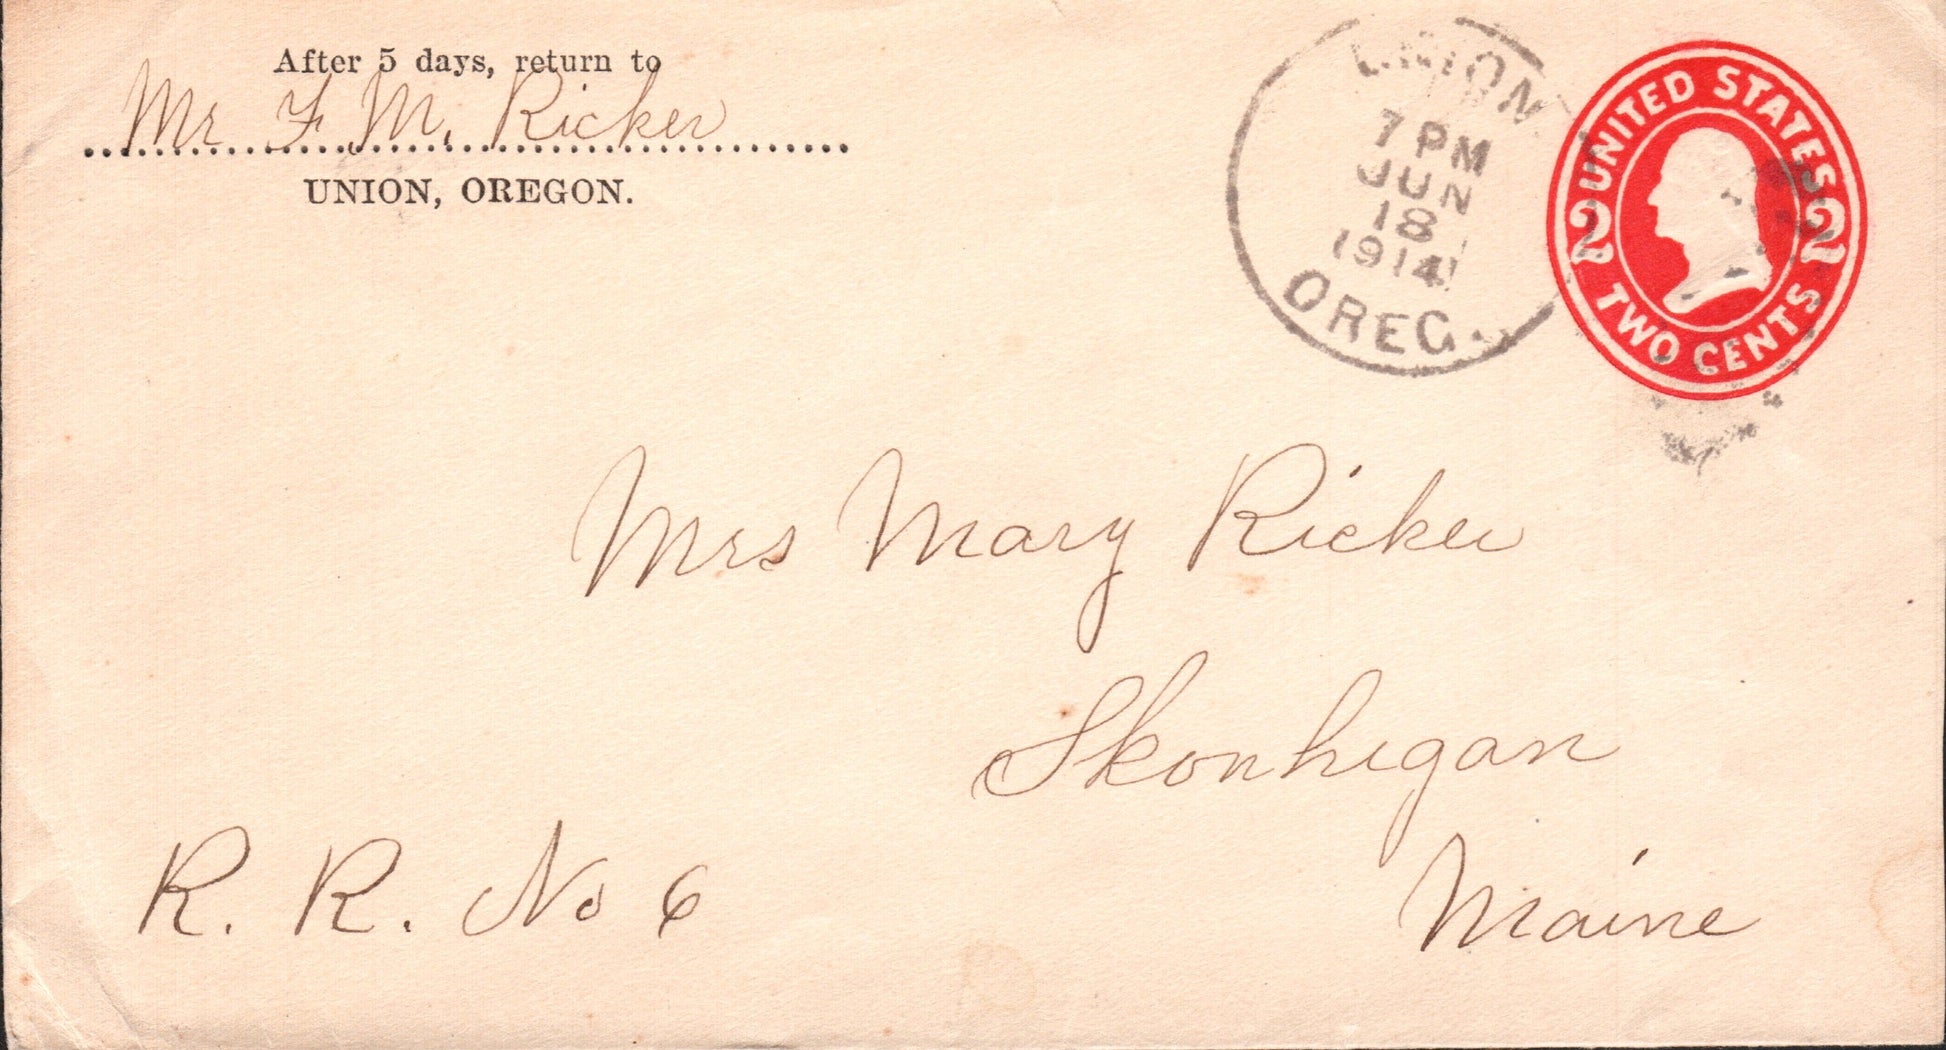 After 5 days, return to
Mr F. M. Ricker
UNION, OREGON.
UNION
7 PM
JUN
18
1914
OREG.
UNITED STATES
2 2
TWO CENTS
Mrs Mary Ricker
Skonhigan
Maine
R. R. No 6